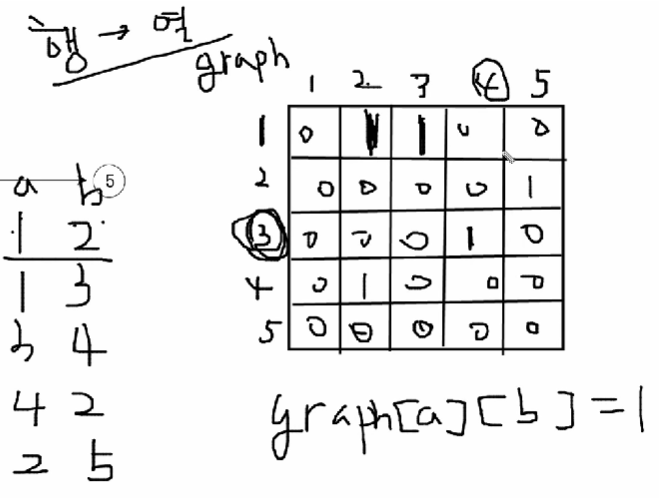 행 → 열
graph
1 2 3 4 5
1 0 1 1 0 0
2 0 0 0 0 1
3 0 0 0 1 0
4 0 1 0 0 0
5 0 0 0 0 0
a b 5
1 2
1 3
3 4
4 2
2 5
graph[a][b]=1